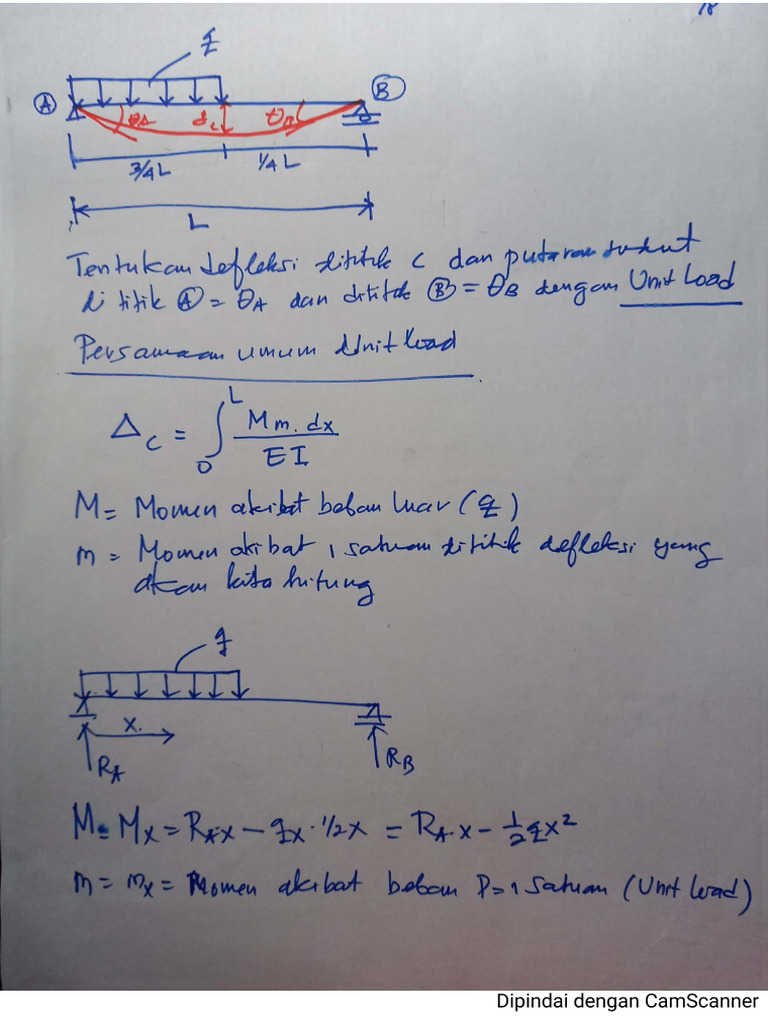 18
q
A
B
θA δc θB
3/4L 1/4 L
L
Tentukan defleksi dititik C dan putaran sudut
di titik A = θA dan dititik B = θB dengan Unit Load
Persamaan umum Unit load
Δc = ∫₀ᴸ Mm. dx / EI
M = Momen akibat beban luar (q)
m = Momen akibat 1 satuan dititik defleksi yang
akan kita hitung
q
x.
RA
RB
M = Mx = RA.x - qx. 1/2 x = RA. x - 1/2 qx²
m = mx = Momen akibat beban P=1 satuan (Unit load)
Dipindai dengan CamScanner